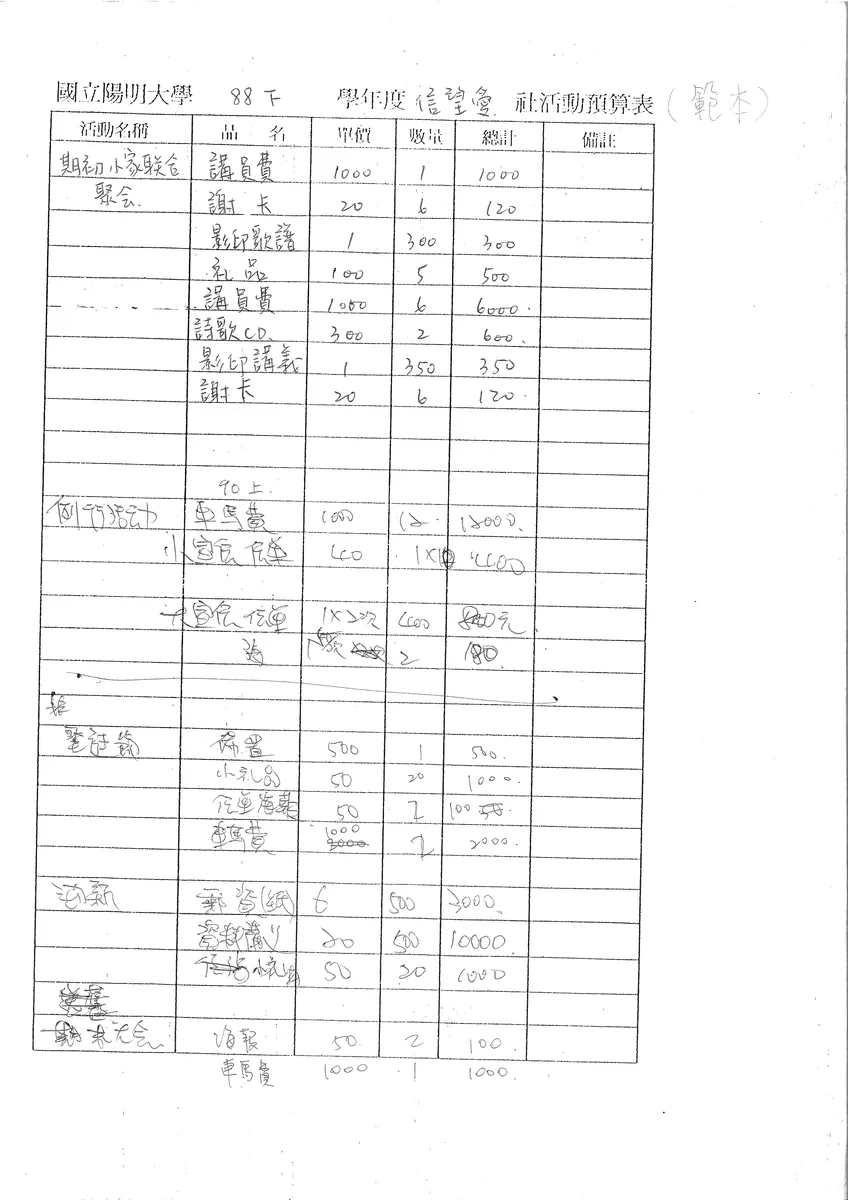 國立陽明大學 88下 學年度 信望愛 社活動預算表 (範本)
活動名稱 品名 單價 數量 總計 備註
期初小家聯合 講員費 1000 1 1000
聚会 謝卡 20 6 120
影印歌譜 1 300 300
礼品 100 5 500
講員費 1000 6 6000
詩歌CD 300 2 600
影印講義 1 350 350
謝卡 20 6 120
90上
例行活动 車馬費 1000 12 12000
小宣会传单 400
大宣会传单 1×2次 400 元
2
布置 500 1 500
小礼品 50 20 1000
50 2 100
車馬費 1000 2 2000
郵資(紙) 6 500 3000
20 500 10000
50 20 1000
期末大会 海報 50 2 100
車馬費 1000 1 1000